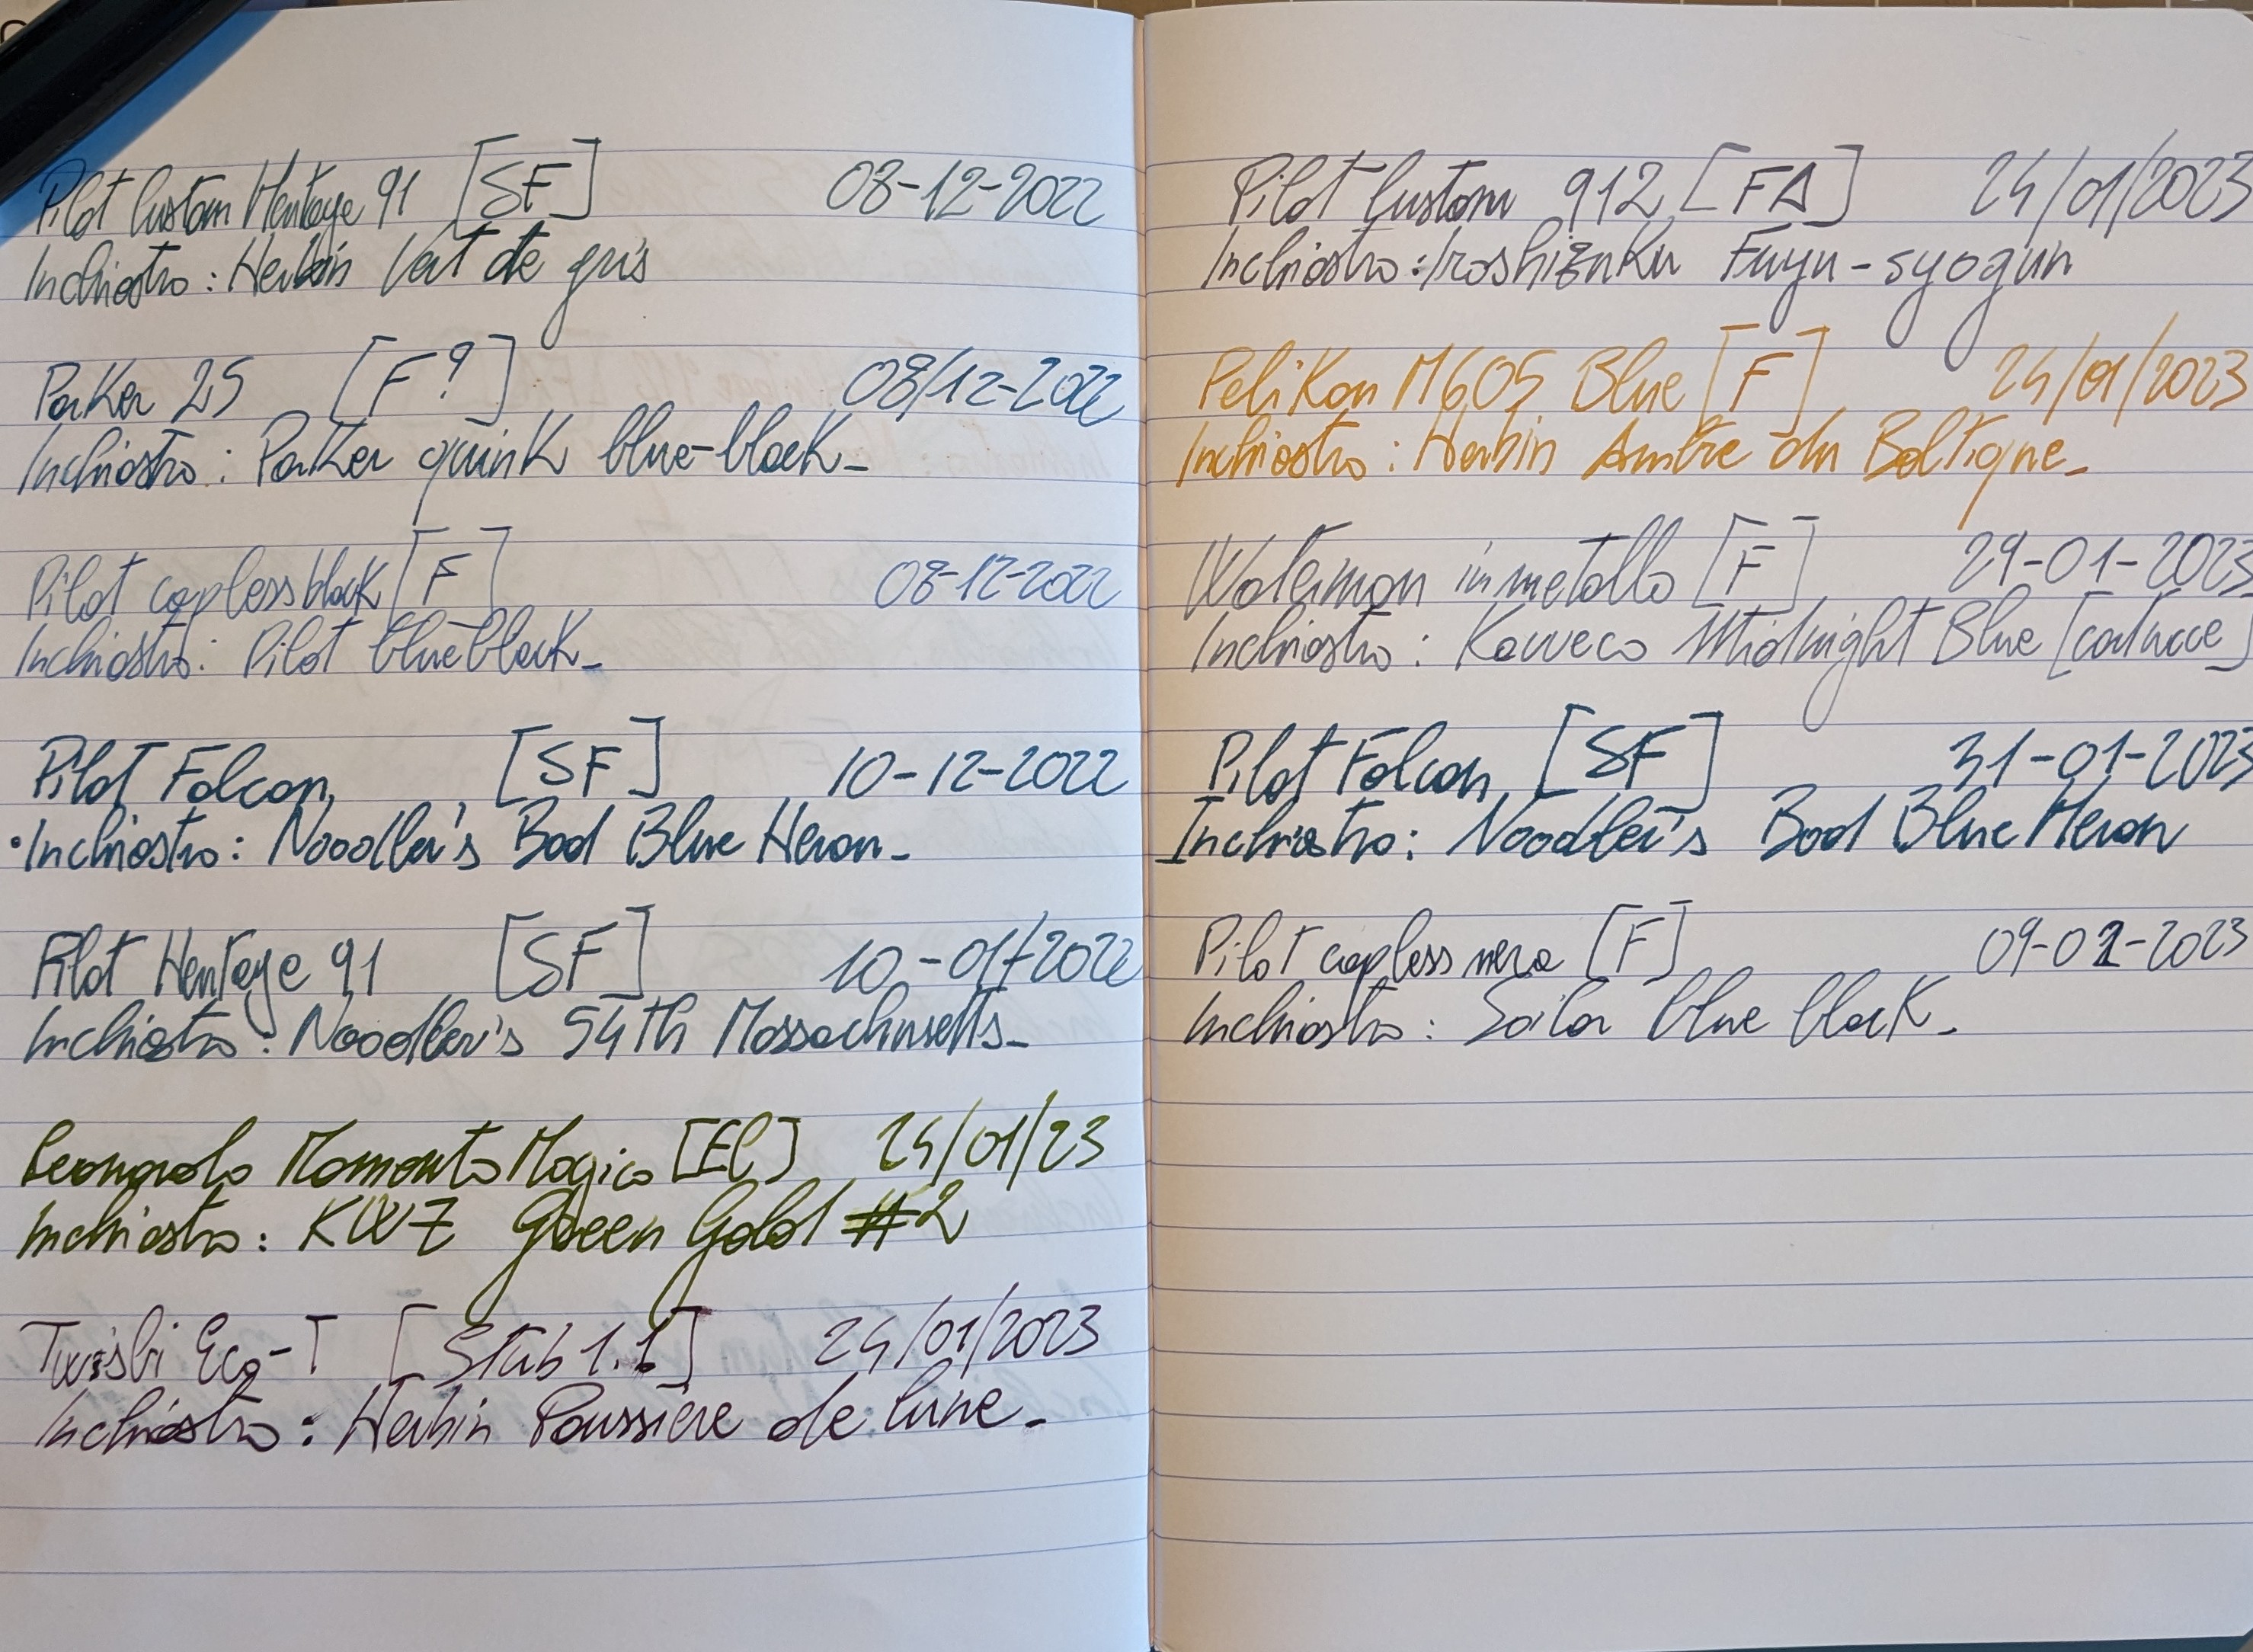 Pilot Custom Heritage 91 [SF] 08-12-2022
Inchiostro: Herbin Vert de gris
Parker 25 [F?] 08/12-2022
Inchiostro: Parker quink blue-black-
Pilot capless black [F] 08-12-2022
Inchiostro: Pilot blue black-
Pilot Falcon, [SF] 10-12-2022
Inchiostro: Noodler's Bad Blue Heron-
Pilot Heritage 91 [SF] 10-01-2022
Inchiostro: Noodler's 54th Massachusetts-
Leonardo Momento Magico [EF] 24/01/23
Inchiostro: KWZ Green Gold #2
Twisbi Eco-T [Stub 1.1] 24/01/2023
Inchiostro: Herbin Poussière de lune-
Pilot Custom 912 [FA] 24/01/2023
Inchiostro: Iroshizuku Fuyu-syogun
Pelikan M605 Blue [F] 24/01/2023
Inchiostro: Herbin Ambre du Baltique-
Waterman in metallo [F] 29-01-2023
Inchiostro: Kaweco Midnight Blue [cartucce]
Pilot Falcon [SF] 31-01-2023
Inchiostro: Noodler's Bad Blue Heron
Pilot capless nera [F] 09-02-2023
Inchiostro: Sailor blue black-